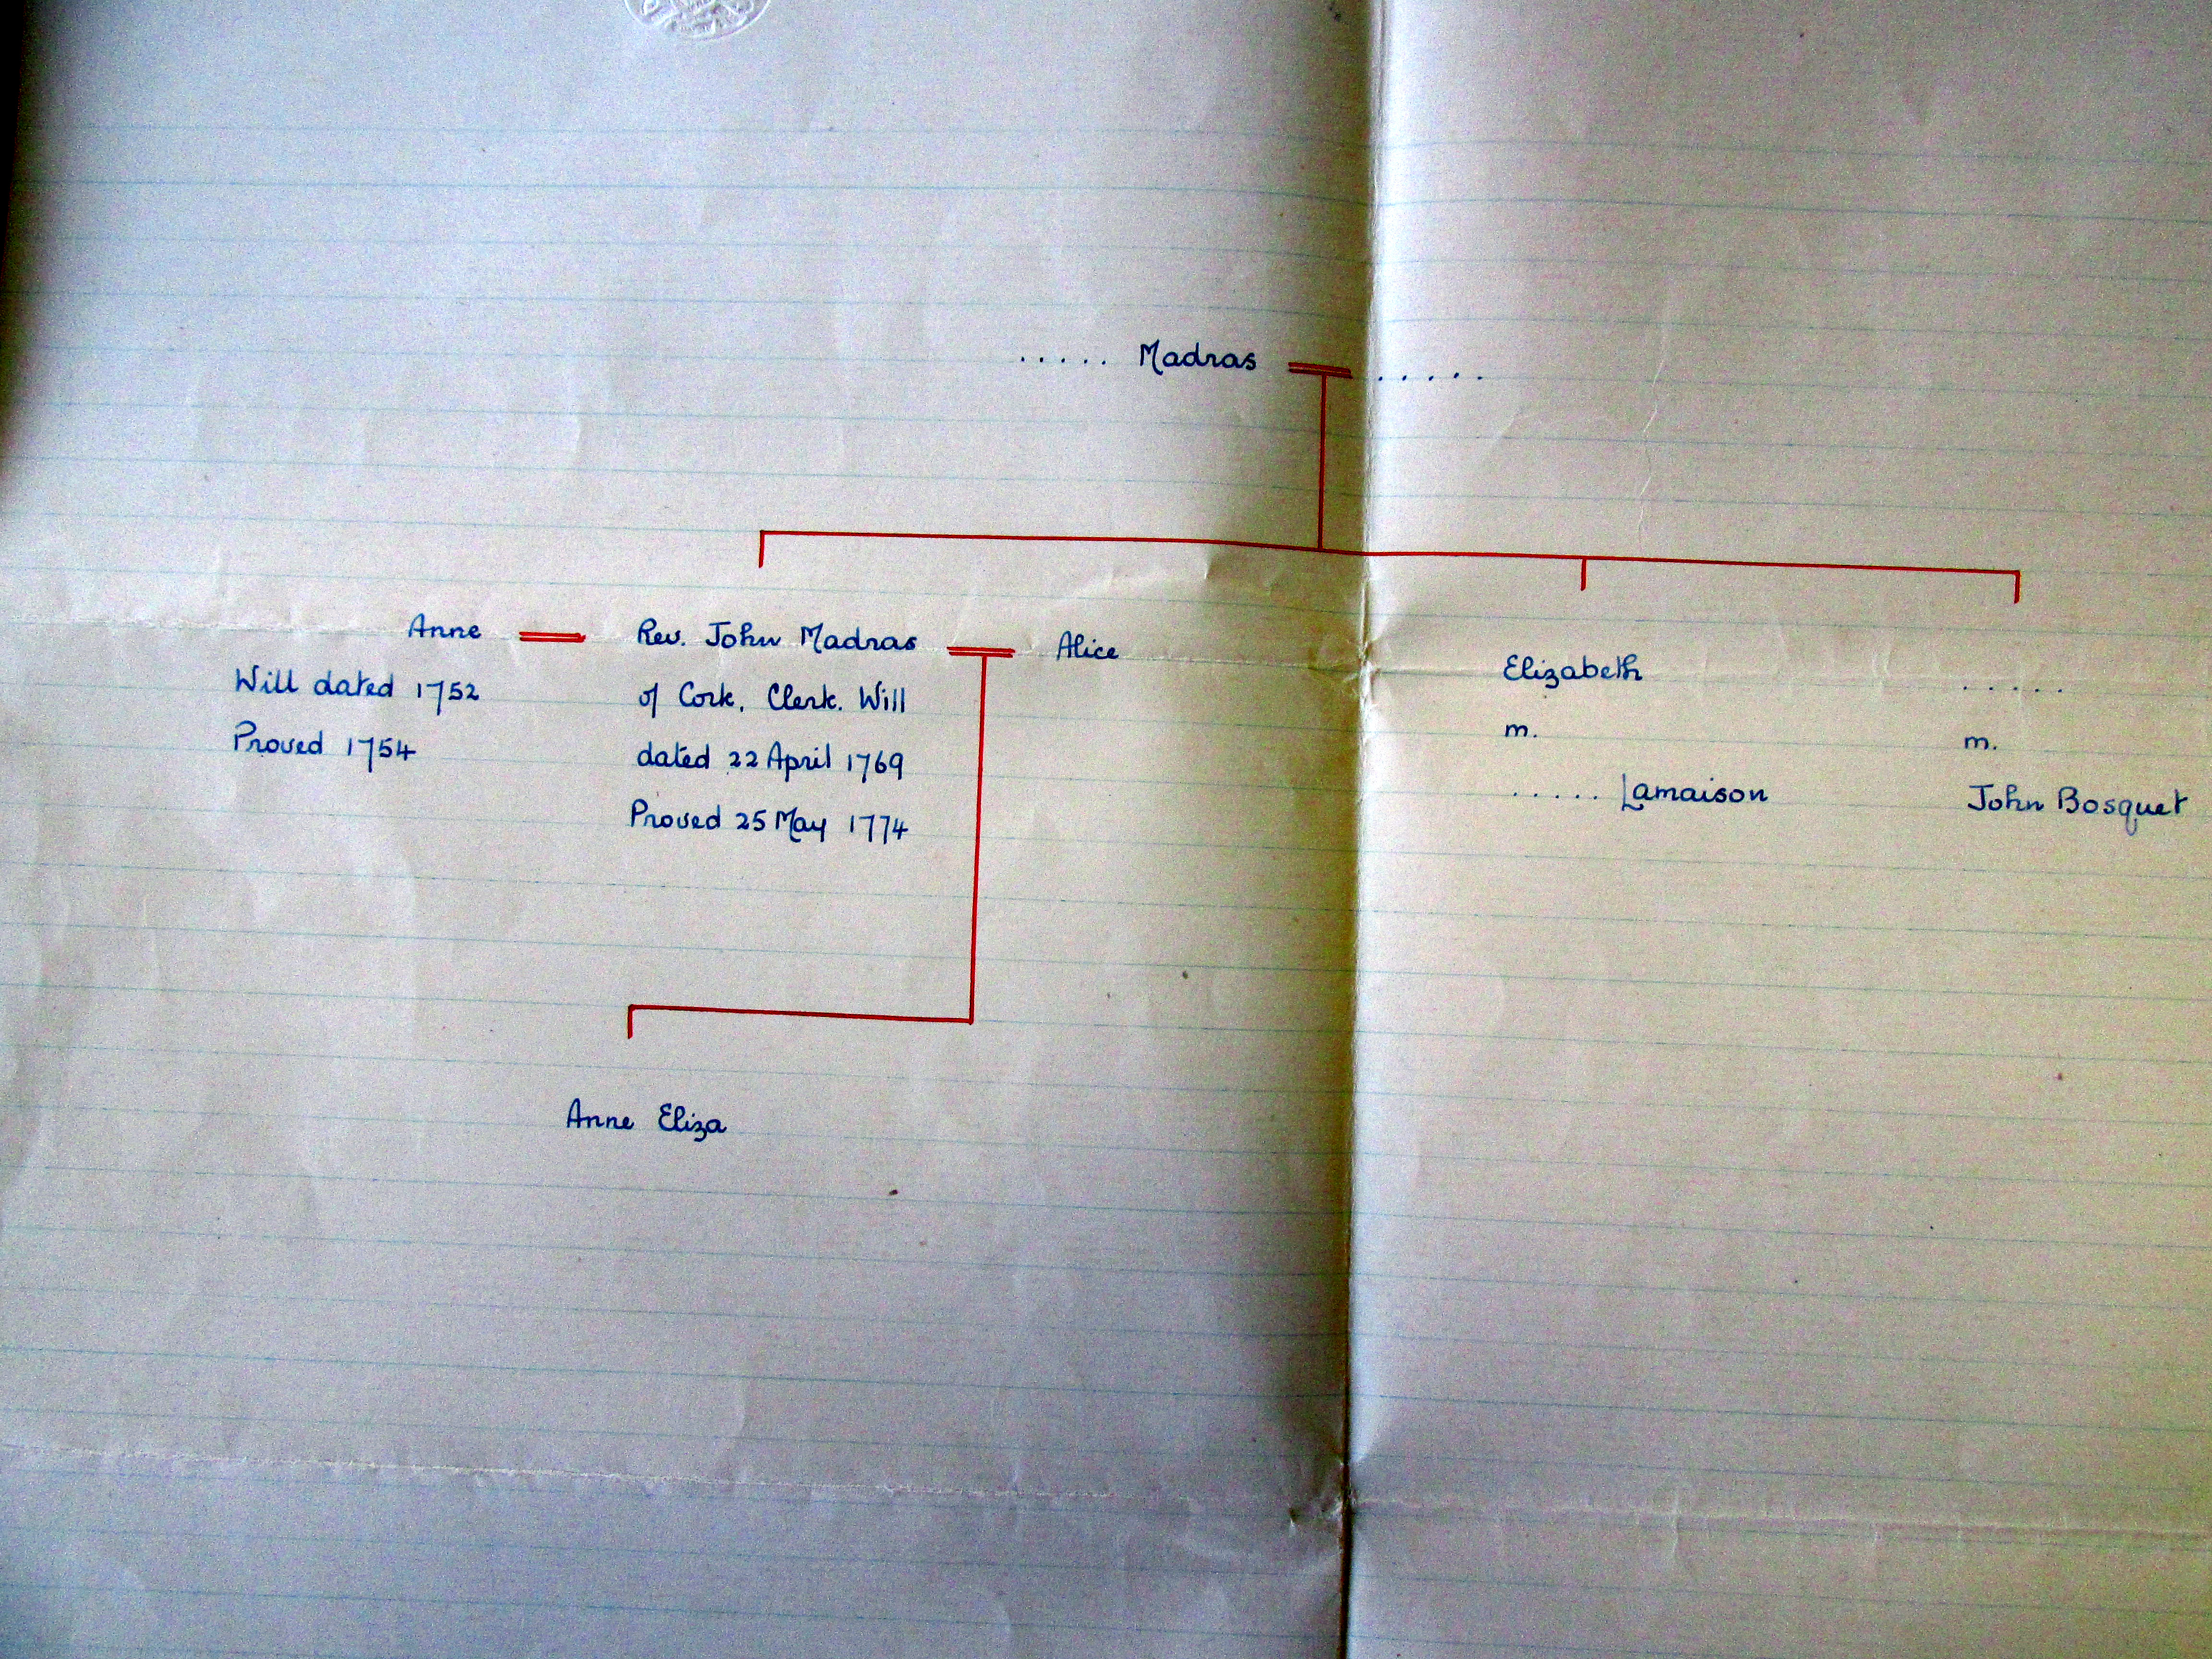 ..... Madras .....
Anne
Will dated 1752
Proved 1754
Rev. John Madras
of Cork, Clerk. Will
dated 22 April 1769
Proved 25 May 1774
Alice
Elizabeth
m.
..... Lamaison
.....
m.
John Bosquet
Anne Eliza